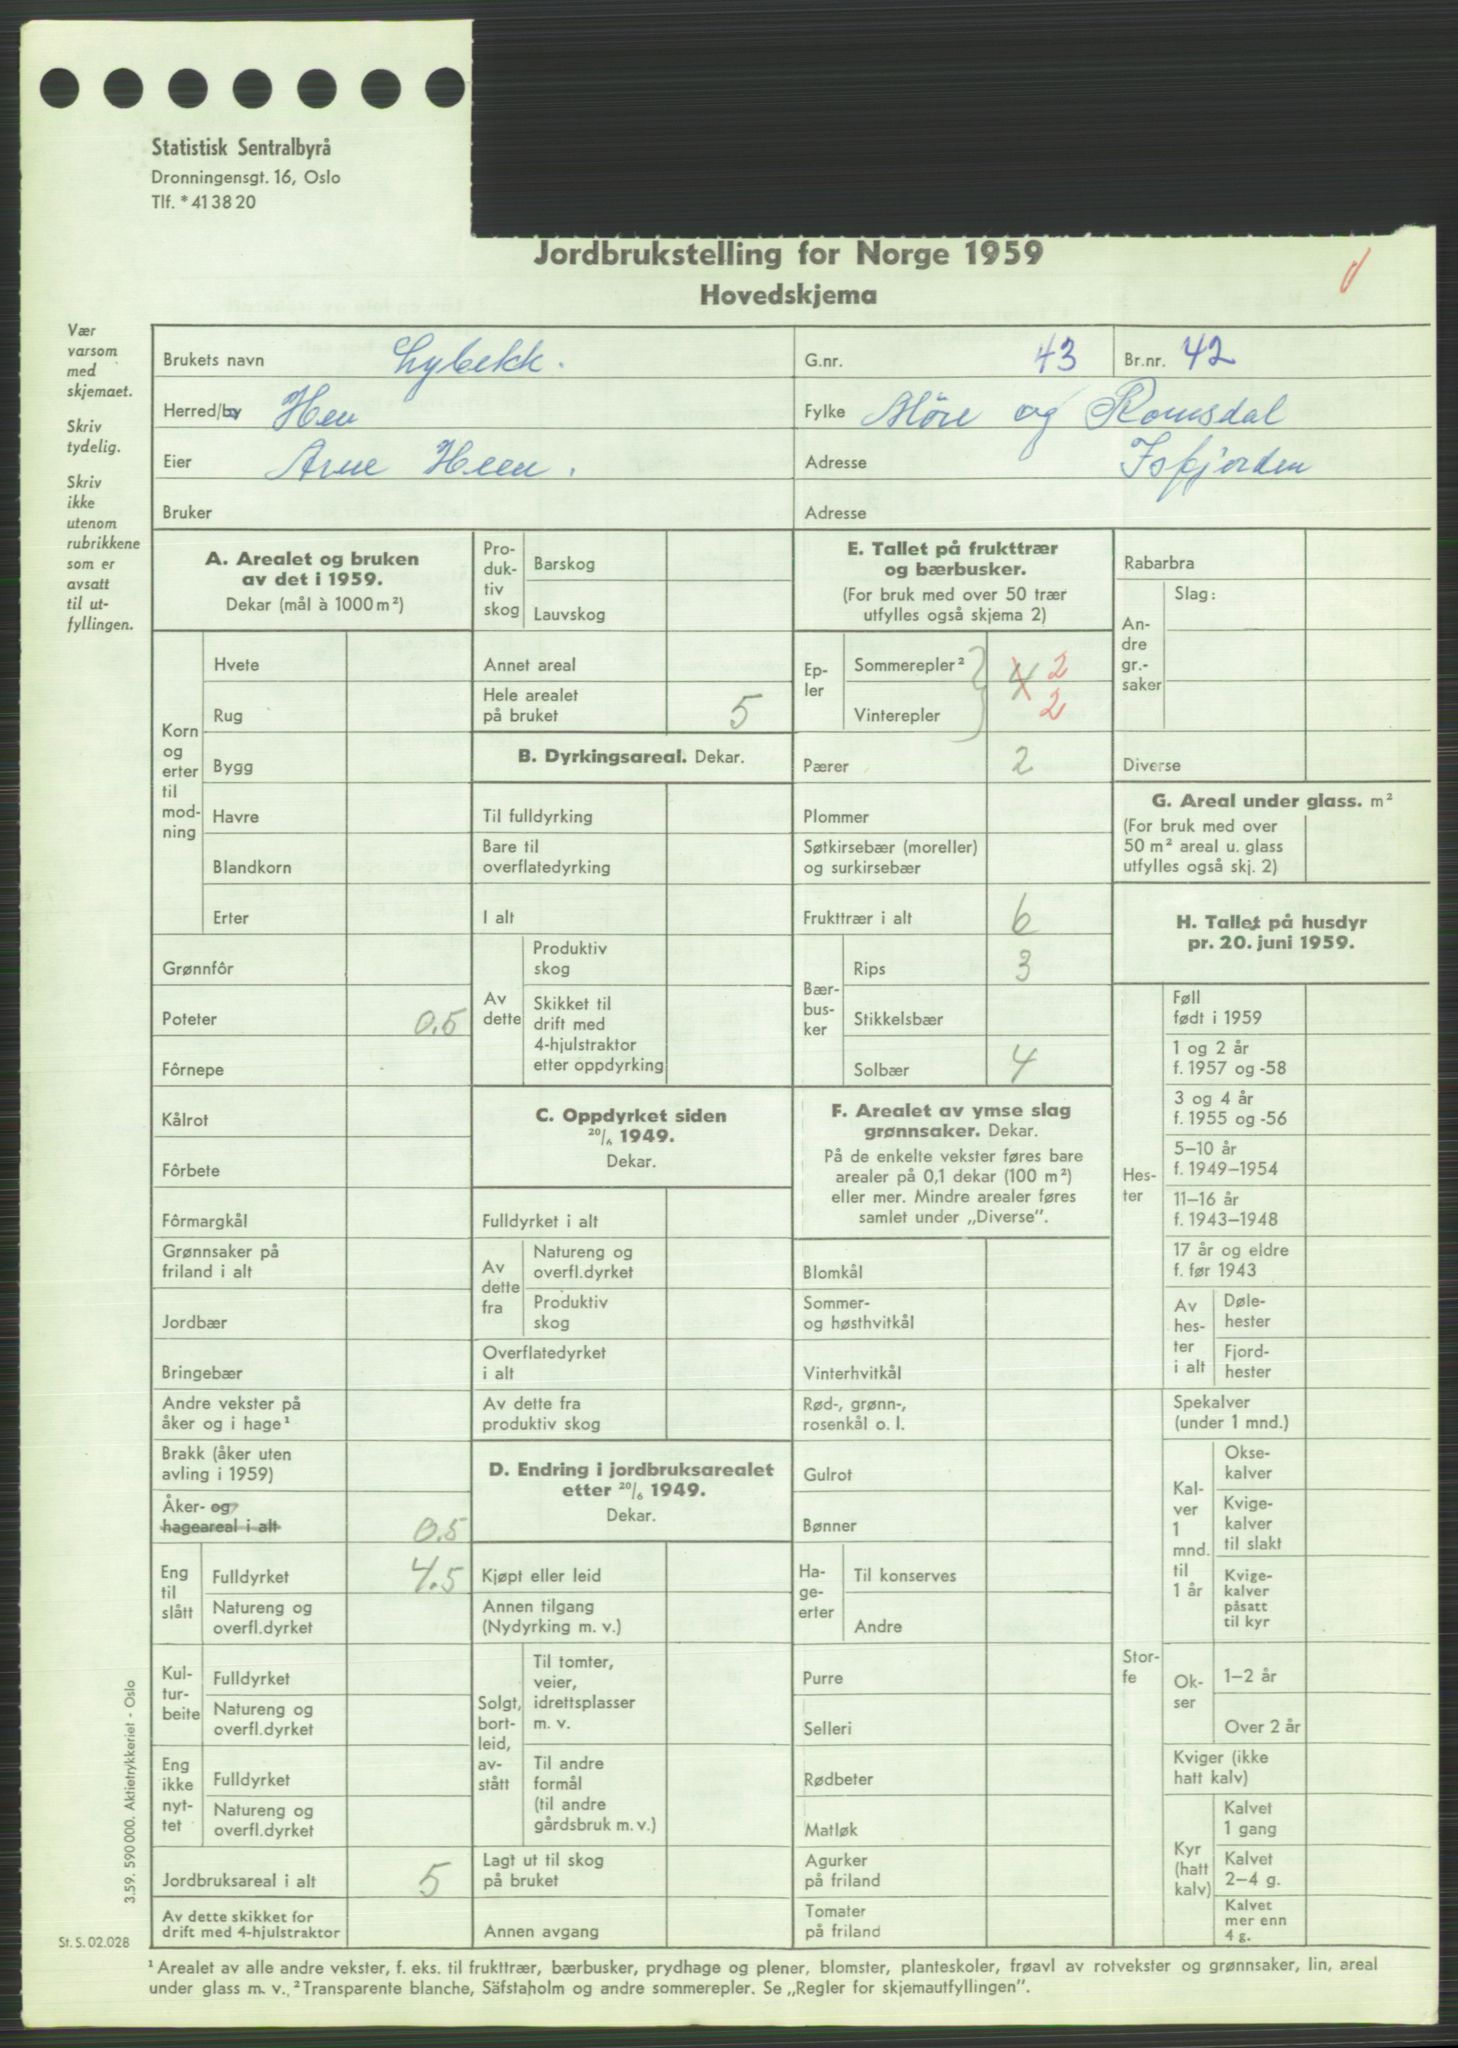 Statistisk Sentralbyrå
Dronningensgt. 16, Oslo
Tlf. * 41 38 20
Jordbrukstelling for Norge 1959
Hovedskjema
Vær
varsom
med
skjemaet.
Skriv
tydelig.
Skriv
ikke
utenom
rubrikkene
som er
avsatt
til ut-
fyllingen.
Brukets navn Lybekk.
G.nr. 43 Br.nr. 42
Herred/by Hen
Fylke Møre og Romsdal
Eier Arne Heen.
Adresse Isfjorden
Bruker
Adresse
A. Arealet og bruken
av det i 1959.
Dekar (mål à 1000 m²)
Korn
og
erter
til
mod-
ning
Hvete
Rug
Bygg
Havre
Blandkorn
Erter
Grønnfôr
Poteter 0.5
Fôrnepe
Kålrot
Fôrbete
Fôrmargkål
Grønnsaker på
friland i alt
Jordbær
Bringebær
Andre vekster på
åker og i hage¹
Brakk (åker uten
avling i 1959)
Åker- og
hageareal i alt 0.5
Eng
til
slått
Fulldyrket 4.5
Natureng og
overfl.dyrket
Kul-
tur-
beite
Fulldyrket
Natureng og
overfl.dyrket
Eng
ikke
nyt-
tet
Fulldyrket
Natureng og
overfl.dyrket
Jordbruksareal i alt 5
Av dette skikket for
drift med 4-hjulstraktor
Pro-
duk-
tiv
skog
Barskog
Lauvskog
Annet areal
Hele arealet
på bruket 5
B. Dyrkingsareal. Dekar.
Til fulldyrking
Bare til
overflatedyrking
I alt
Av
dette
Produktiv
skog
Skikket til
drift med
4-hjulstraktor
etter oppdyrking
C. Oppdyrket siden
20/6 1949.
Dekar.
Fulldyrket i alt
Av
dette
fra
Natureng og
overfl.dyrket
Produktiv
skog
Overflatedyrket
i alt
Av dette fra
produktiv skog
D. Endring i jordbruksarealet
etter 20/6 1949.
Dekar.
Kjøpt eller leid
Annen tilgang
(Nydyrking m. v.)
Solgt,
bort-
leid,
av-
stått
Til tomter,
veier,
idrettsplasser
m. v.
Til andre
formål
(til andre
gårdsbruk m. v.)
Lagt ut til skog
på bruket
Annen avgang
E. Tallet på frukttrær
og bærbusker.
(For bruk med over 50 trær
utfylles også skjema 2)
Ep-
ler
Sommerepler² 4 2
Vinterepler 2
Pærer 2
Plommer
Søtkirsebær (moreller)
og surkirsebær
Frukttrær i alt 6
Bær-
bus-
ker
Rips 3
Stikkelsbær
Solbær 4
F. Arealet av ymse slag
grønnsaker. Dekar.
På de enkelte vekster føres bare
arealer på 0,1 dekar (100 m²)
eller mer. Mindre arealer føres
samlet under „Diverse”.
Blomkål
Sommer-
og høsthvitkål
Vinterhvitkål
Rød-, grønn-,
rosenkål o. l.
Gulrot
Bønner
Ha-
ge-
erter
Til konserves
Andre
Purre
Selleri
Rødbeter
Matløk
Agurker
på friland
Tomater
på friland
Rabarbra
An-
dre
gr.-
saker
Slag:
Diverse
G. Areal under glass. m²
(For bruk med over
50 m² areal u. glass
utfylles også skj. 2)
H. Tallet på husdyr
pr. 20. juni 1959.
Hes-
ter
Føll
født i 1959
1 og 2 år
f. 1957 og -58
3 og 4 år
f. 1955 og -56
5–10 år
f. 1949–1954
11–16 år
f. 1943–1948
17 år og eldre
f. før 1943
Av
hes-
ter
i alt
Døle-
hester
Fjord-
hester
Stor-
fe
Spekalver
(under 1 mnd.)
Kal-
ver
1
mnd.
til
1 år
Okse-
kalver
Kvige-
kalver
til slakt
Kvige-
kalver
påsatt
til kyr
Ok-
ser
1–2 år
Over 2 år
Kviger (ikke
hatt kalv)
Kyr
(hatt
kalv)
Kalvet
1 gang
Kalvet
2–4 g.
Kalvet
mer enn
4 g.
3.59. 590 000. Aktietrykkeriet - Oslo
St. S. 02.028
¹ Arealet av alle andre vekster, f. eks. til frukttrær, bærbusker, prydhage og plener, blomster, planteskoler, frøavl av rotvekster og grønnsaker, lin, areal
under glass m. v. ² Transparente blanche, Säfstaholm og andre sommerepler. Se „Regler for skjemautfyllingen”.